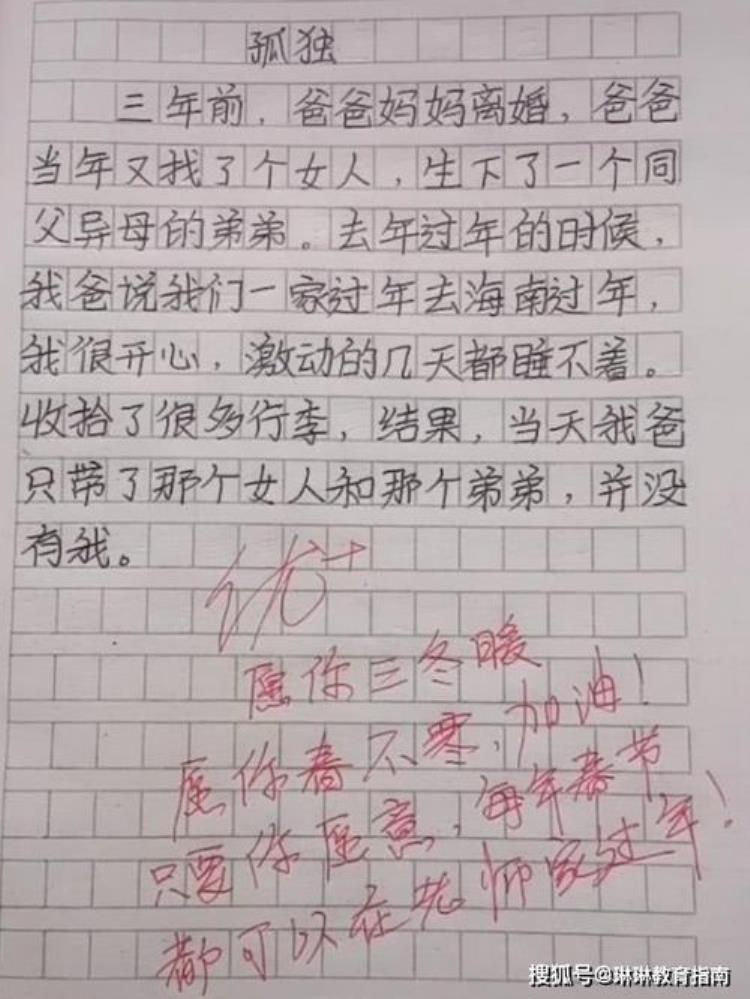 孤独
三年前，爸爸妈妈离婚，爸爸
当年又找了个女人，生下了一个同
父异母的弟弟。去年过年的时候，
我爸说我们一家过年去海南过年，
我很开心，激动的几天都睡不着。
收拾了很多行李，结果，当天我爸
只带了那个女人和那个弟弟，并没
有我。
优+
愿你三冬暖
愿你春不寒，加油！
只要你愿意，每年春节
都可以在老师家过年！
搜狐号@琳琳教育指南